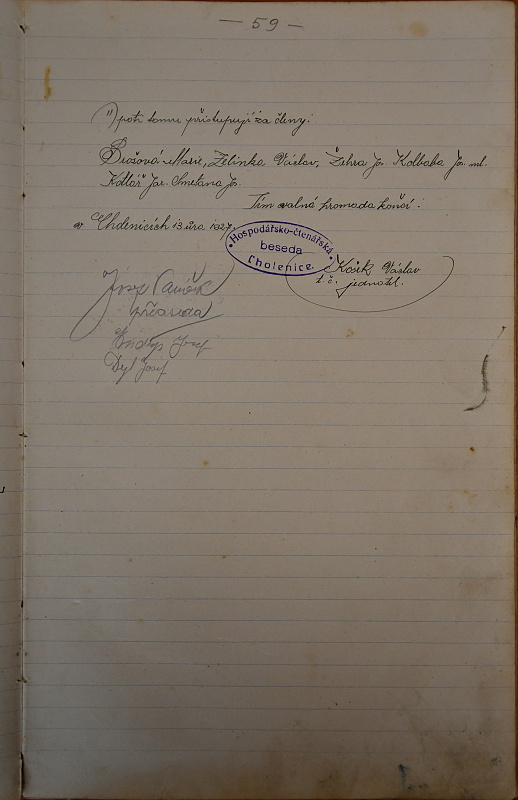 — 59 —
potr tomu přistupují za členy:
Brožová Marie, Zelinka Václav, Žehra Jos. Kolbaba Jos. ml.
Kolář Jar. Smetana Jos.
Tím valná hromada končí:
v Chotěnicích 13 února 1927.
Hospodářsko-čtenářská
beseda
Cholenice.
Košík Václav
t. č. jednatel.
Josef
předseda
Josef
Dyl Josef